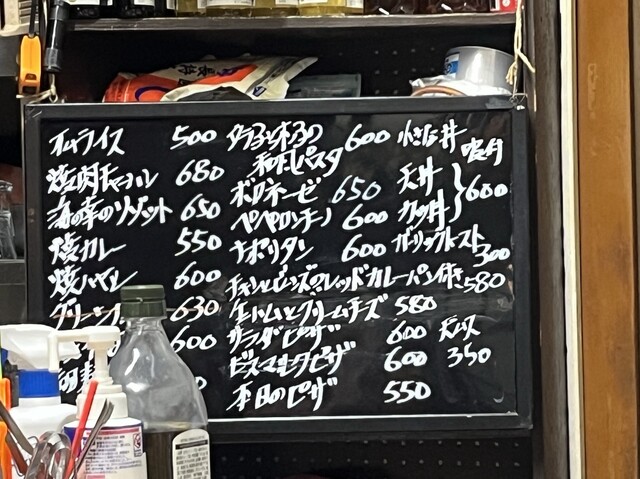 オムライス 500
焼肉チャーハン 680
海の幸のリゾット 650
焼カレー 550
焼ハヤシ 600
グリーン 630
600
和風パスタ 600
ボロネーゼ 650
ペペロンチーノ 600
ナポリタン 600
カレーパン付き 580
生ハムとクリームチーズ 580
サラダピザ 600
ビスマルクピザ 600
本日のピザ 550
天丼
カツ丼
600
ガーリックトースト
300
350